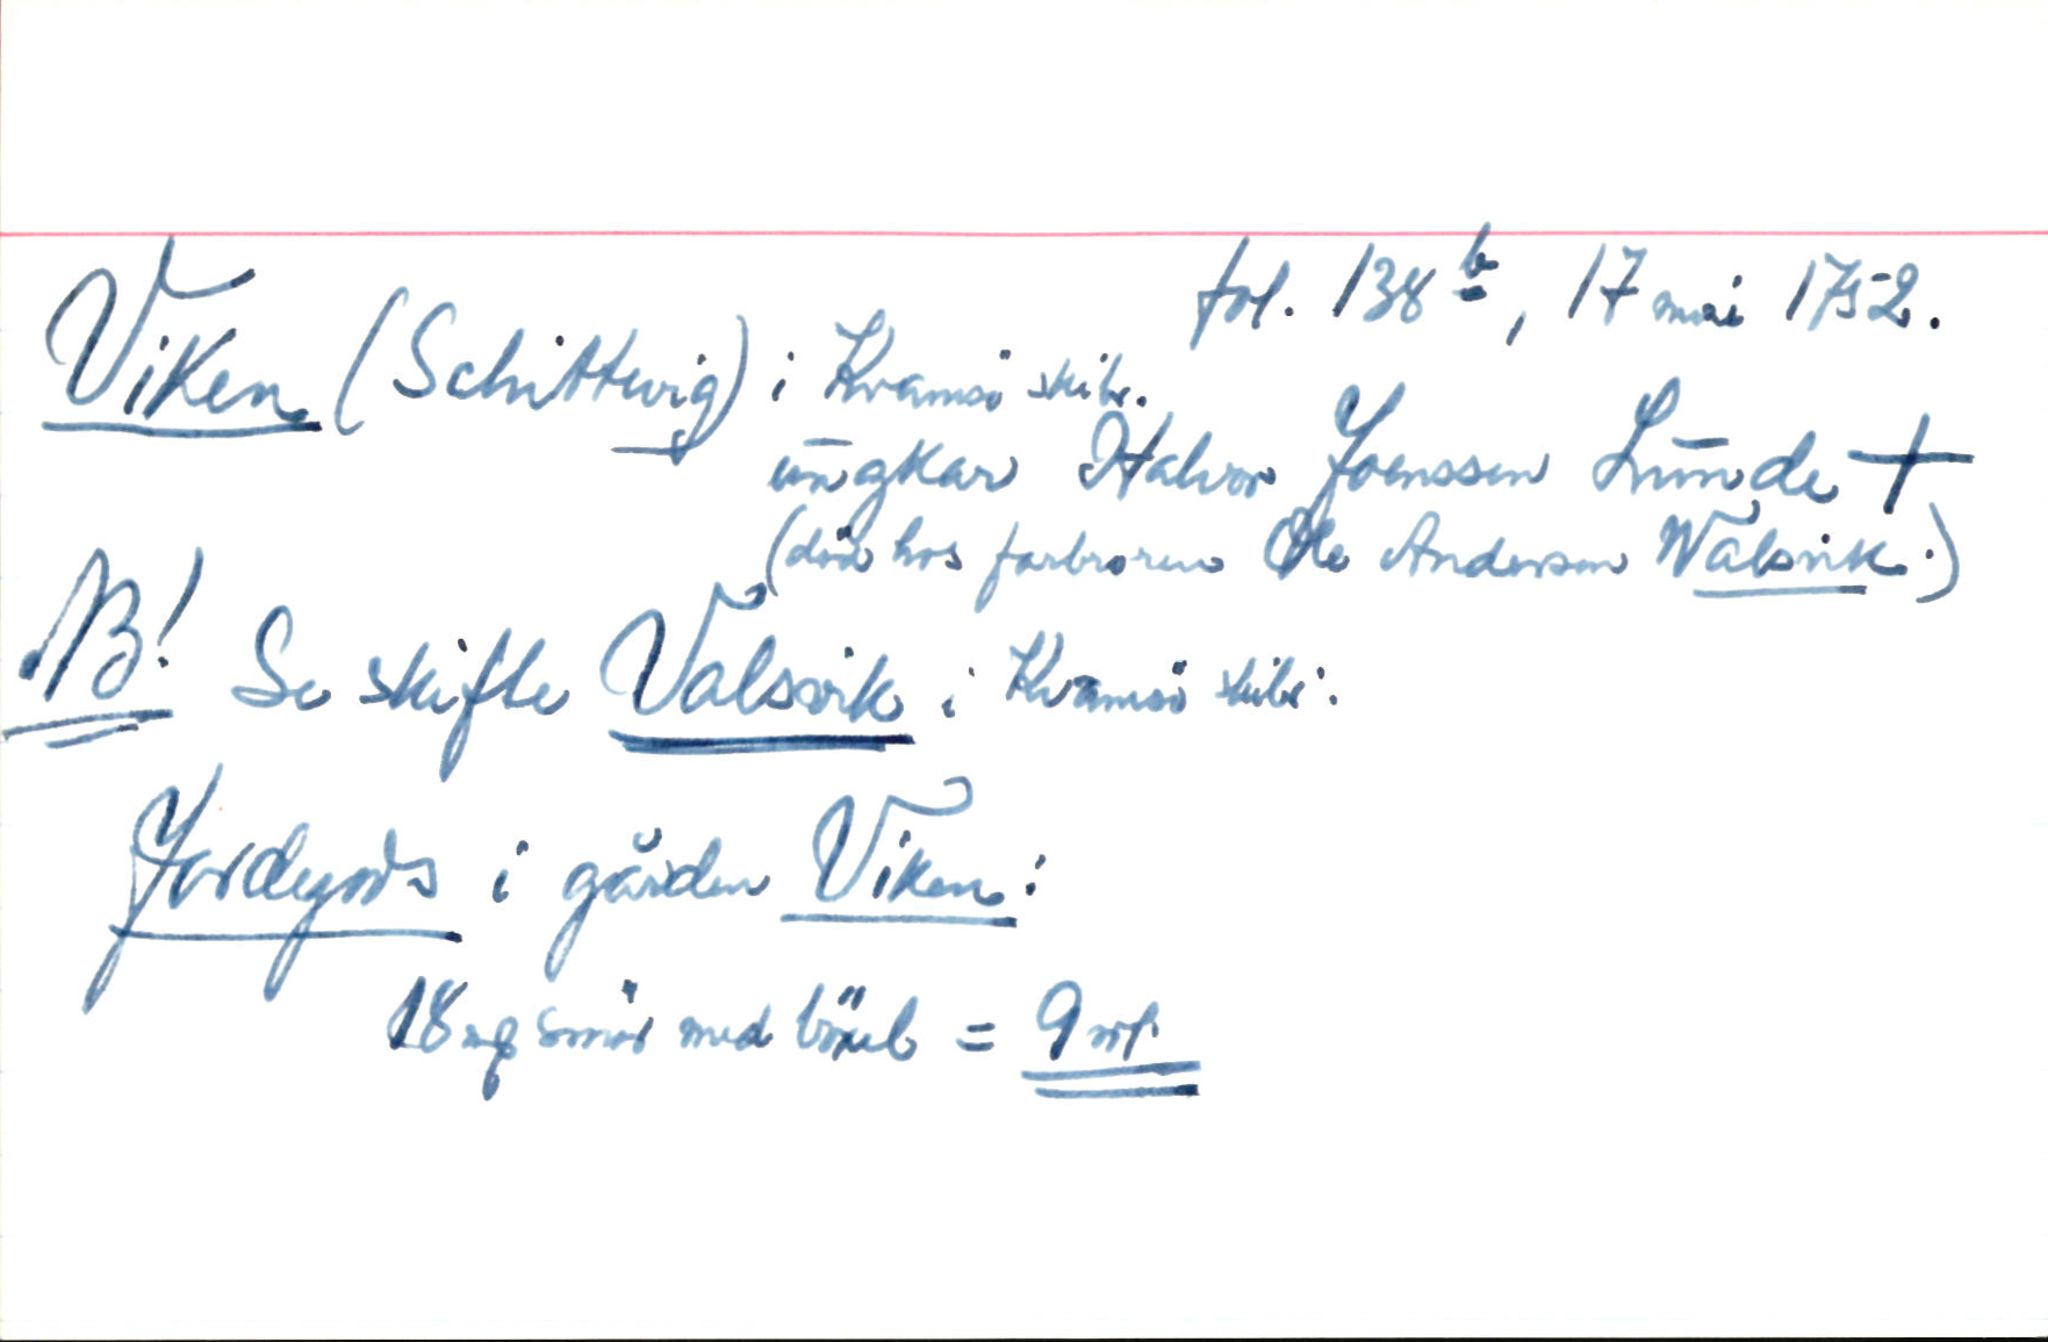 fol. 138 b, 17 mai 1752.
Viken (Schittwig) i Kvamsö skibr.
ungkar Halvor Joenssen Lunde +
(död hos farbroren Ole Andersen Walsvik.)
NB! Se skifte Valsvik i Kvamsö skibr.
Jordegods i gården Viken:
18 mf smör med böxel = 9 rd.